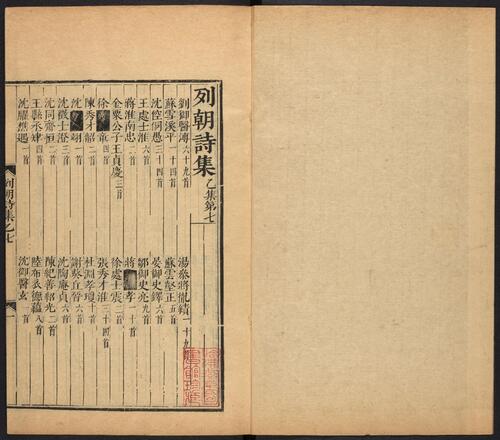 列朝詩集 乙集第七
劉御醫溥 六十九首
湯參將胤勣 一十九首
蘇雪溪平 一十四首
蘇雲壑正 五首
沈倥侗愚 三十四首
晏御史鐸 六首
王處士淮 六首
鄒御史亮 九首
蔣淮南忠 二首
蔣 孝 一十首
金粟公子王貞慶 三首
徐處士震 二首
徐 章 四首
張秀才淮 三十四首
陳秀才韶 二首
杜淵孝瓊 十首
沈 翊 一首
謝葵丘晉 六首
沈徵士澄 三首
沈陶庵貞 六首
沈同齋恒 二首
陳紀善 光 二首
王縣丞肆 四首
陸布衣德蘊 八首
沈 懋遇 一首
沈御醫玄 一首
列朝詩集乙七
一